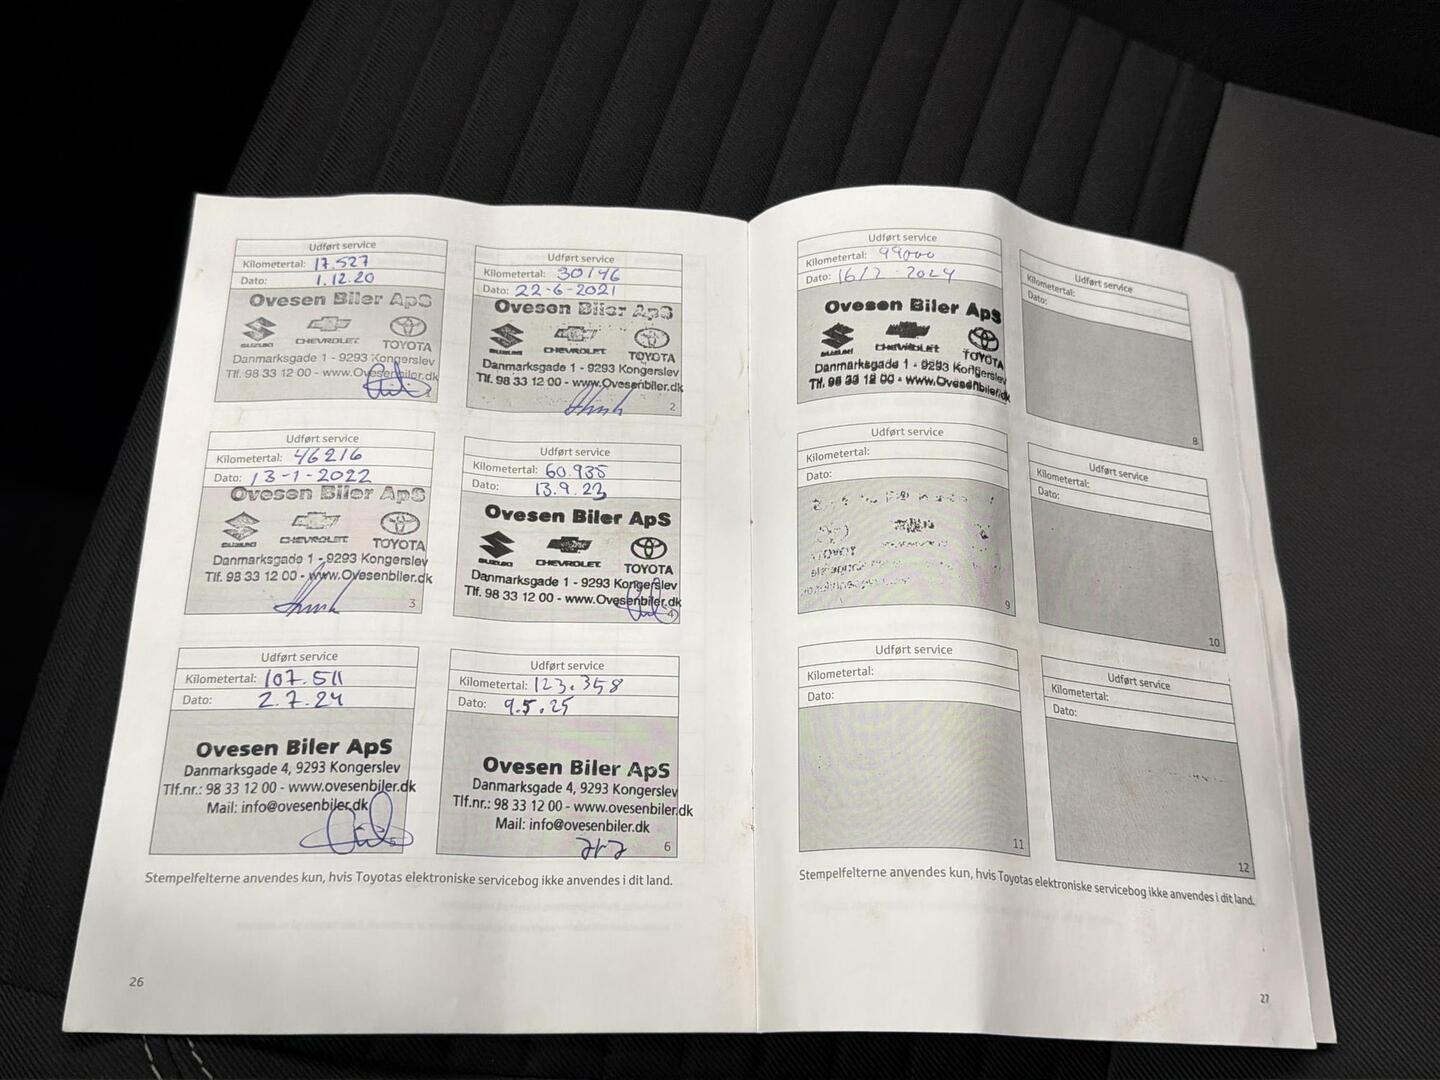 Udført service
Kilometertal: 17.527
Dato: 1.12.20
Ovesen Biler ApS
SUZUKI CHEVROLET TOYOTA
Danmarksgade 1 - 9293 Kongerslev
Tlf. 98 33 12 00 - www.Ovesenbiler.dk
1
Udført service
Kilometertal: 30196
Dato: 22-6-2021
Ovesen Biler ApS
SUZUKI CHEVROLET TOYOTA
Danmarksgade 1 - 9293 Kongerslev
Tlf. 98 33 12 00 - www.Ovesenbiler.dk
2
Udført service
Kilometertal: 46216
Dato: 13-1-2022
Ovesen Biler ApS
SUZUKI CHEVROLET TOYOTA
Danmarksgade 1 - 9293 Kongerslev
Tlf. 98 33 12 00 - www.Ovesenbiler.dk
3
Udført service
Kilometertal: 60.935
Dato: 13.9.23
Ovesen Biler ApS
SUZUKI CHEVROLET TOYOTA
Danmarksgade 1 - 9293 Kongerslev
Tlf. 98 33 12 00 - www.Ovesenbiler.dk
4
Udført service
Kilometertal: 107.511
Dato: 2.7.24
Ovesen Biler ApS
Danmarksgade 4, 9293 Kongerslev
Tlf.nr.: 98 33 12 00 - www.ovesenbiler.dk
Mail: info@ovesenbiler.dk
5
Udført service
Kilometertal: 123.358
Dato: 9.5.25
Ovesen Biler ApS
Danmarksgade 4, 9293 Kongerslev
Tlf.nr.: 98 33 12 00 - www.ovesenbiler.dk
Mail: info@ovesenbiler.dk
6
Stempelfelterne anvendes kun, hvis Toyotas elektroniske servicebog ikke anvendes i dit land.
26
Udført service
Kilometertal: 99000
Dato: 16/2 - 2024
Ovesen Biler ApS
SUZUKI CHEVROLET TOYOTA
Danmarksgade 1 - 9293 Kongerslev
Tlf. 98 33 12 00 - www.Ovesenbiler.dk
Udført service
Kilometertal:
Dato:
8
Udført service
Kilometertal:
Dato:
9
Udført service
Kilometertal:
Dato:
10
Udført service
Kilometertal:
Dato:
11
Udført service
Kilometertal:
Dato:
12
Stempelfelterne anvendes kun, hvis Toyotas elektroniske servicebog ikke anvendes i dit land.
27